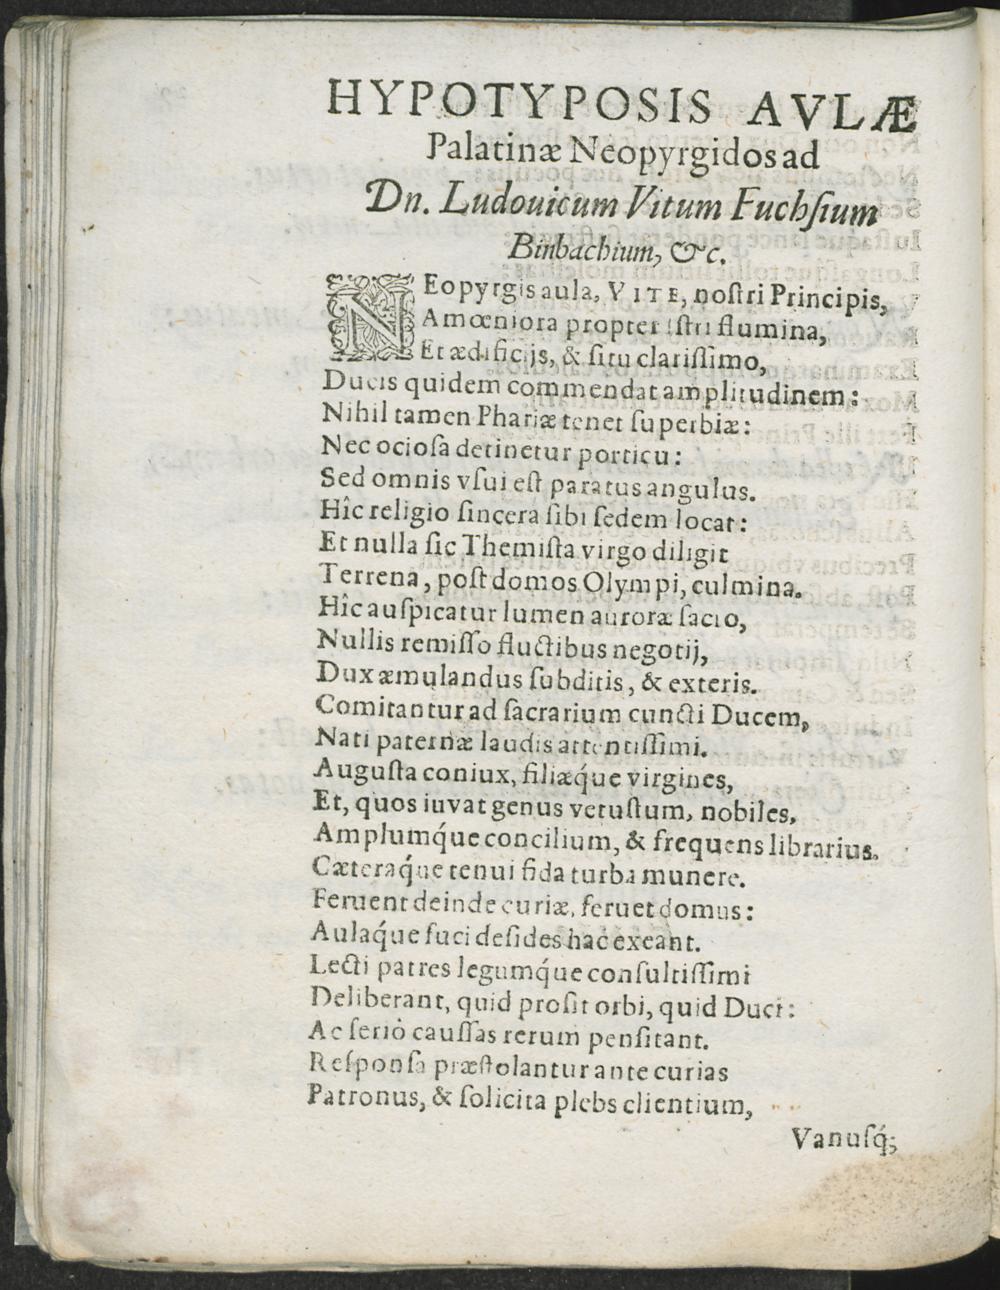 HYPOTYPOSIS AVLÆ
Palatinæ Neopyrgidos ad
Dn. Ludouicum Vitum Fuchſium
Binbachium, &c.
NEopyrgis aula, VITE, noſtri Principis,
Amœniora propter iſtri flumina,
Et ædificijs, & ſitu clariſſimo,
Ducis quidem commendat amplitudinem:
Nihil tamen Phariæ tenet ſuperbiæ:
Nec ocioſa detinetur porticu:
Sed omnis vſui eſt paratus angulus.
Hîc religio ſincera ſibi ſedem locat:
Et nulla ſic Themiſta virgo diligit
Terrena, poſt domos Olympi, culmina.
Hîc auſpicatur lumen auroræ ſacro,
Nullis remiſſo fluctibus negotij,
Dux æmulandus ſubditis, & exteris.
Comitantur ad ſacrarium cuncti Ducem,
Nati paternæ laudis attentiſſimi.
Auguſta coniux, filiæq́ue virgines,
Et, quos iuvat genus vetuſtum, nobiles,
Amplumq́ue concilium, & frequens librarius.
Cæteraq́ue tenui fida turba munere.
Feruent deinde curiæ, feruet domus:
Aulaq́ue fuci deſides hac exeant.
Lecti patres legumq́ue conſultiſſimi
Deliberant, quid proſit orbi, quid Duci:
Ac ſeriò cauſſas rerum penſitant.
Reſponſa præſtolantur ante curias
Patronus, & ſolicita plebs clientium,
Vanuſq́;